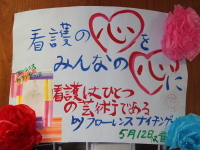 看護の心を
みんなの心に
看護はひとつ
の芸術である
byフローレンスナイチンゲ
5月12日